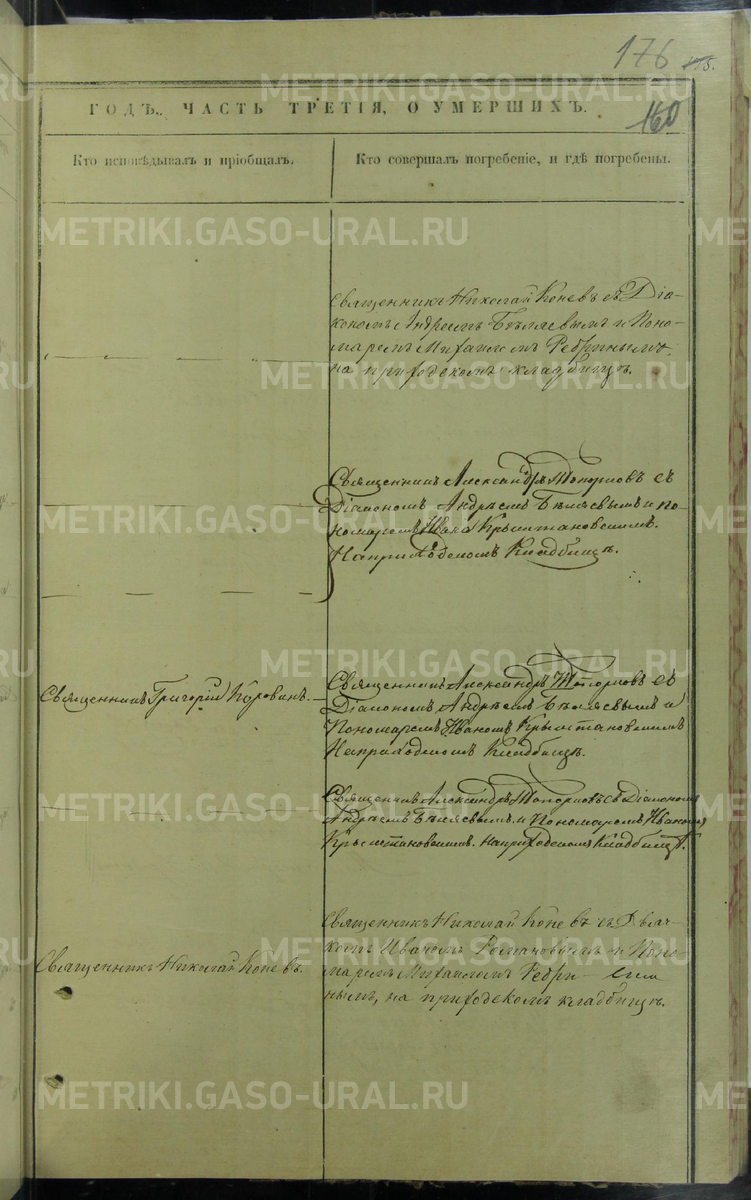 176 175.
160
ГОДЪ. ЧАСТЬ ТРЕТІЯ, О УМЕРШИХЪ.
Кто исповѣдывалъ и пріобщалъ.
Кто совершалъ погребеніе, и гдѣ погребены.
Священникъ Николай Коневъ съ Діа-
кономъ Андреемъ Бѣляевымъ и Поно-
маремъ Михаиломъ Ребринымъ,
на приходскомъ кладбищѣ.
Священникъ Александръ Топорковъ съ
Діакономъ Андрѣемъ Бѣляевымъ и по-
номаремъ
Наприходскомъ Кладбищѣ.
Священникъ Григорій Коровинъ.
Священникъ Александръ Топорковъ съ
Діакономъ Андрѣемъ Бѣляевымъ и
Пономаремъ Иваномъ
Наприходскомъ Кладбищѣ.
Священникъ Александръ Топорковъ съ Діакономъ
Андрѣемъ Бѣляевымъ и Пономаремъ Иваномъ
наприходскомъ Кладбищѣ.
Священникъ Николай Коневъ.
Священникъ Николай Коневъ съ Дьяч-
комъ Иваномъ и Поно-
маремъ Михаиломъ Ребри-
нымъ, на приходскомъ кладбищѣ.
METRIKI.GASO-URAL.RU